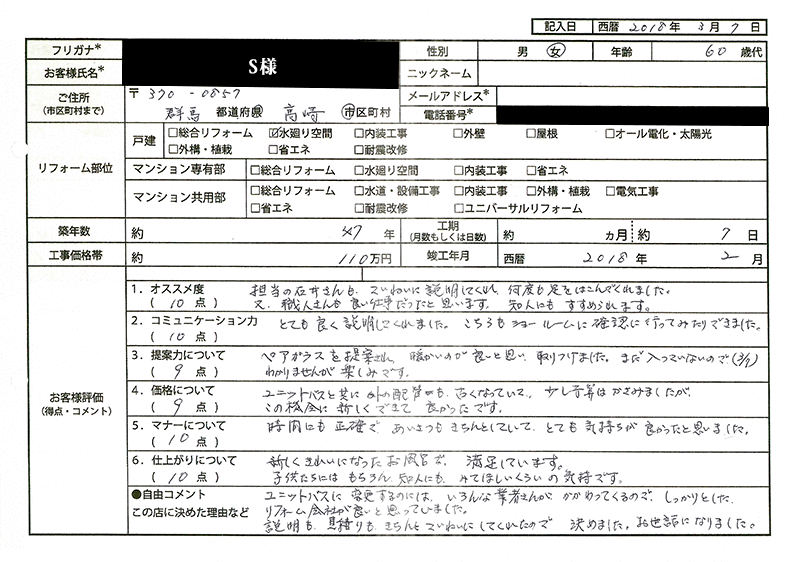 記入日 西暦 2018年 3月 7日
フリガナ*
お客様氏名* S様
性別 男 女 年齢 60 歳代
ニックネーム
ご住所
(市区町村まで)
〒370-0857
群馬 都道府県 高崎 市区町村
メールアドレス*
電話番号*
リフォーム部位
戸建 □総合リフォーム ☑水廻り空間 □内装工事 □外壁 □屋根 □オール電化・太陽光
□外構・植栽 □省エネ □耐震改修
マンション専有部 □総合リフォーム □水廻り空間 □内装工事 □省エネ
マンション共用部 □総合リフォーム □水道・設備工事 □内装工事 □外構・植栽 □電気工事
□省エネ □耐震改修 □ユニバーサルリフォーム
築年数 約 47 年 工期 (月数もしくは日数) 約 ヵ月 約 7 日
工事価格帯 約 110万円 竣工年月 西暦 2018 年 2 月
お客様評価
(得点・コメント)
1. オススメ度
( 10 点 )
担当の石井さんも、ていねいに説明してくれ、何度も足をはこんでくれました。
又、職人さんも良い仕事だったと思います。知人にもすすめられます。
2. コミュニケーション力
( 10 点 )
とても良く説明してくれました。こちらもショールームに確認に行ってみたりできました。
3. 提案力について
( 9 点 )
ペアガラスを提案され、暖かいのが良いと思い取りつけました。まだ入っていないので(3/7)
わかりませんが楽しみです。
4. 価格について
( 9 点 )
ユニットバスと共に外の配管も、古くなっていて、少し予算はかさみましたが、
この機会に新しくできて良かったです。
5. マナーについて
( 10 点 )
時間にも正確であいさつもきちんとしていて、とても気持ちが良かったと思いました。
6. 仕上がりについて
( 10 点 )
新しくきれいになったお風呂で、満足しています。
子供たちにはもちろん知人にも、みてほしいくらいの気持です。
●自由コメント
この店に決めた理由など
ユニットバスに変更するのには、いろんな業者さんがかかわってくるので、しっかりとした、
リフォーム会社が良いと思っていました。
説明も、見積りも、きちんとていねいにしてくれたので 決めました。お世話になりました。